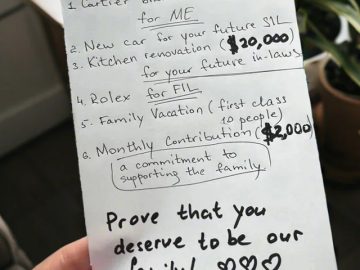 1. Cartier
for ME.
2. New car for your future SIL
3. Kitchen renovation ($20,000)
for your future in-laws
4. Rolex for FIL
5. Family Vacation (first class
10 people)
6. Monthly Contribution ($2,000)
a commitment to
supporting the family
Prove that you
deserve to be our
family! ♡♡♡